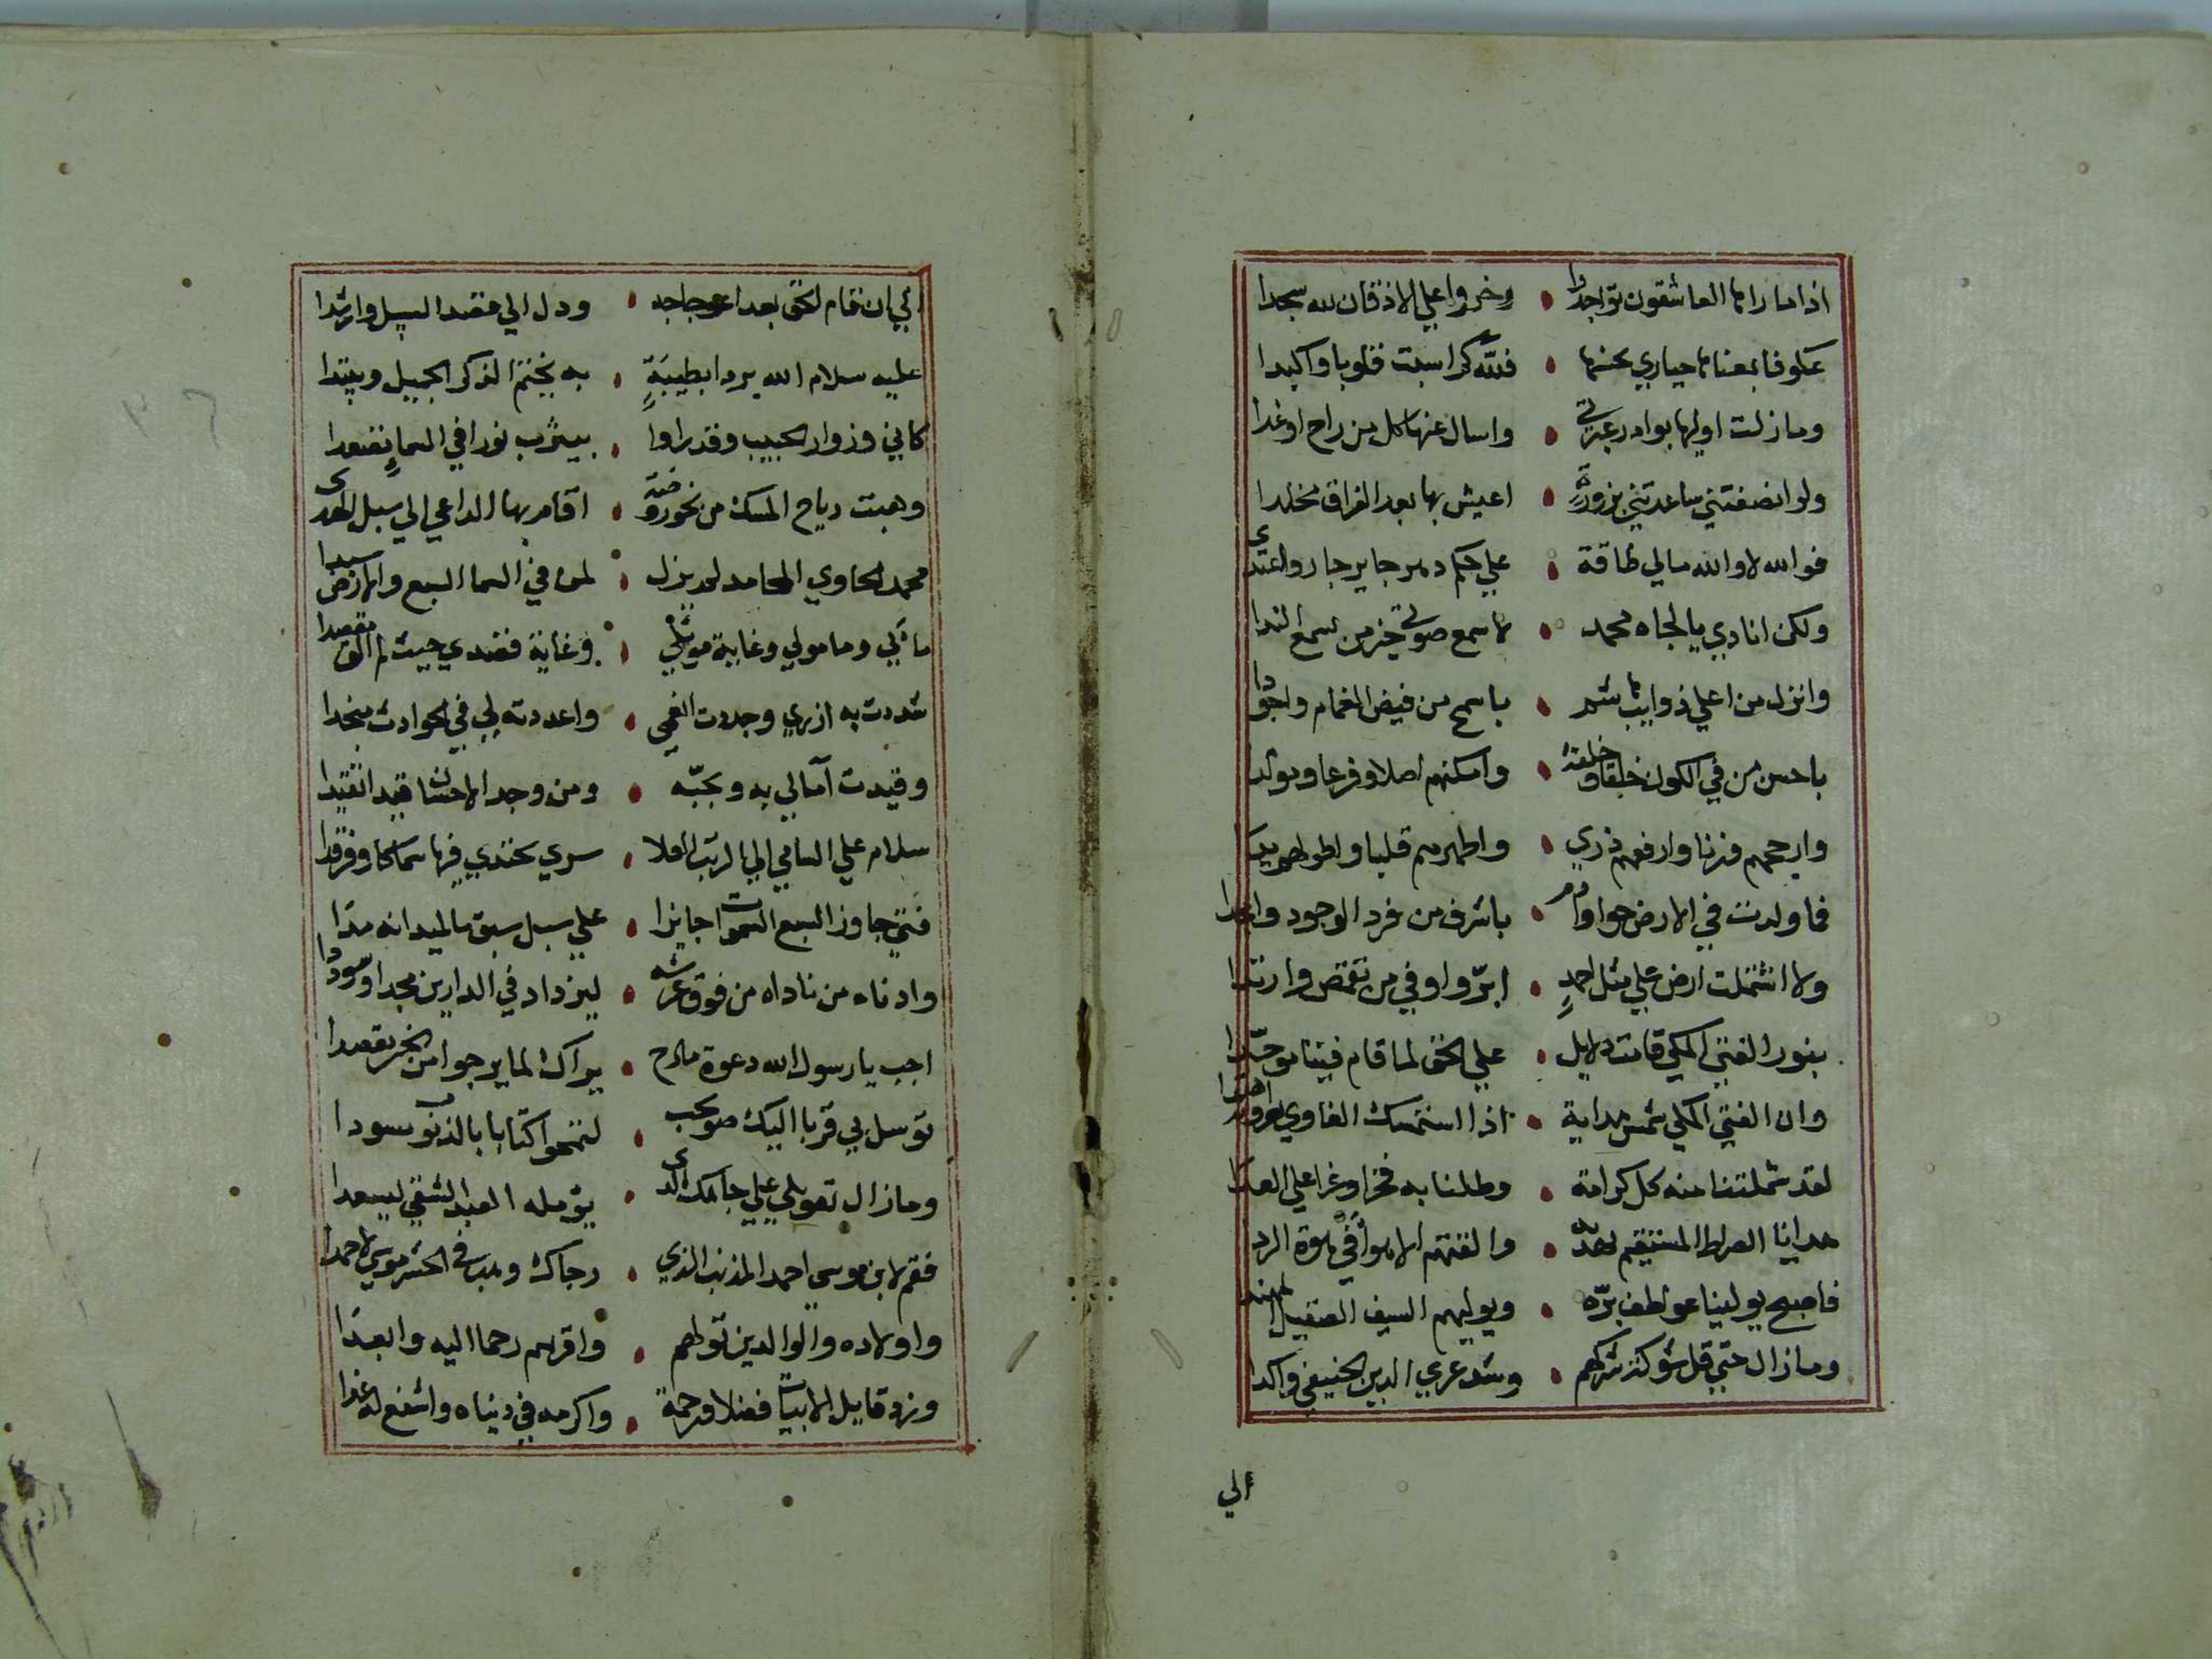 اذا ما راها العاشقون تواجدوا • وخروا علي الاذقان لله سجدا
عكوفا بمعناها حياري بحسنها • فلله كم اسبت قلوبا واكبدا
وما زلت اوليها بوادر عبرتي • واسال عنها كل من راح او غدا
ولو انصفتني ساعدتني بزورة • اعيش بها بعد الفراق مخلدا
فوالله لا والله مالي طاقة • علي حكم دهر جاير جار واعتدى
ولكن انادي يالجاه محمد • لاسمع صوتي خير من سمع الندا
وانزل من اعلي ذوايب هاشم • باسمح من فيض الغمام واجودا
باحسن من في الكون خلقا وخلقة • وامكنهم اصلا وفرعا ومولدا
وارجحهم وزنا وارفعهم ذري • واطهرهم قلبا واطولهم يدا
فما ولدت في الارض حوا وادم • باشرف من فرد الوجود وامجدا
ولا اشتملت ارض علي مثل احمدٍ • ابرّ واوفي من تقمص وارتدا
بنور الفتي المكي قامت دلايل • علي الحق لما قام فينا موحّدا
وان الفتي المكي شمس هداية • اذا استمسك الغاوي بعروته اهتدا
لقد شملتنا منه كل كرامة • وطلنا به فخرا وعزا علي العدا
هدانا الصراط المستقيم بهديه • والفتهم الاهوا في هوة الردا
فاصبح يولينا عواطف برّه • ويوليهم السيف الصقيل المهندا
وما زال حتي فل شوكة شركهم • وشد عري الدين الحنيفي واكدا
الي
الي ان اقام الحق بعد اعوجاجه • ودل الي قصد السبيل وارشدا
عليه سلام الله يردا بطيبةٍ • به يختم الذكر الجميل ويبتدا
كاني وزوار الحبيب وقد راوا • بيثرب نورا في السماءِ تصعدا
وهبت رياح المسك من نحو روضة • اقام بها الداعي الي سبل الهدى
محمد الحاوي المحامد لم يزل • لمن في السما السبع والارض سيدا
مابي ومامولي وغاية مويلي • وغاية قصدي حيث لم الق مقصدا
شددت به ازري وجددت انعمي • واعددته لي في الحوادث منجدا
وقيدت آمالي به وبحبّه • ومن وجد الاحسان قيدا تقيدا
سلام علي السامي الي الرتب العلا • سري يحتدي فيها سماكا وفرقدا
فتي جاوز السبع السموات جايزا • علي سبل سبق ما لميدانه مدا
وادناه من ناداه من فوق عرشه • ليزداد في الدارين مجدا وسوددا
اجب يا رسول الله دعوة مادح • يراك لما يرجوا من الخير مقصدا
توسل بي قربا اليك صويحب • لتمحوا كتابا بالذنوب مسودا
وما زال تعويلي علي جاهك الذى • يؤمله العبد الشقي ليسعدا
فقم لابن موسي احمد المذنب الذي • رجاك وهب في الحشر موسي لاحمدا
واولاده والوالدين تولهم • واقربهم رحما اليه وابعدا
وزد قايل الابيات فضلا ورحمة • واكرمه في دنياه واشفع له غدا